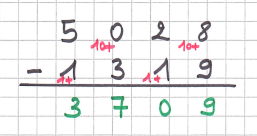 5 10+0 2 10+8
- 1+1 3 1+1 9
3 7 0 9